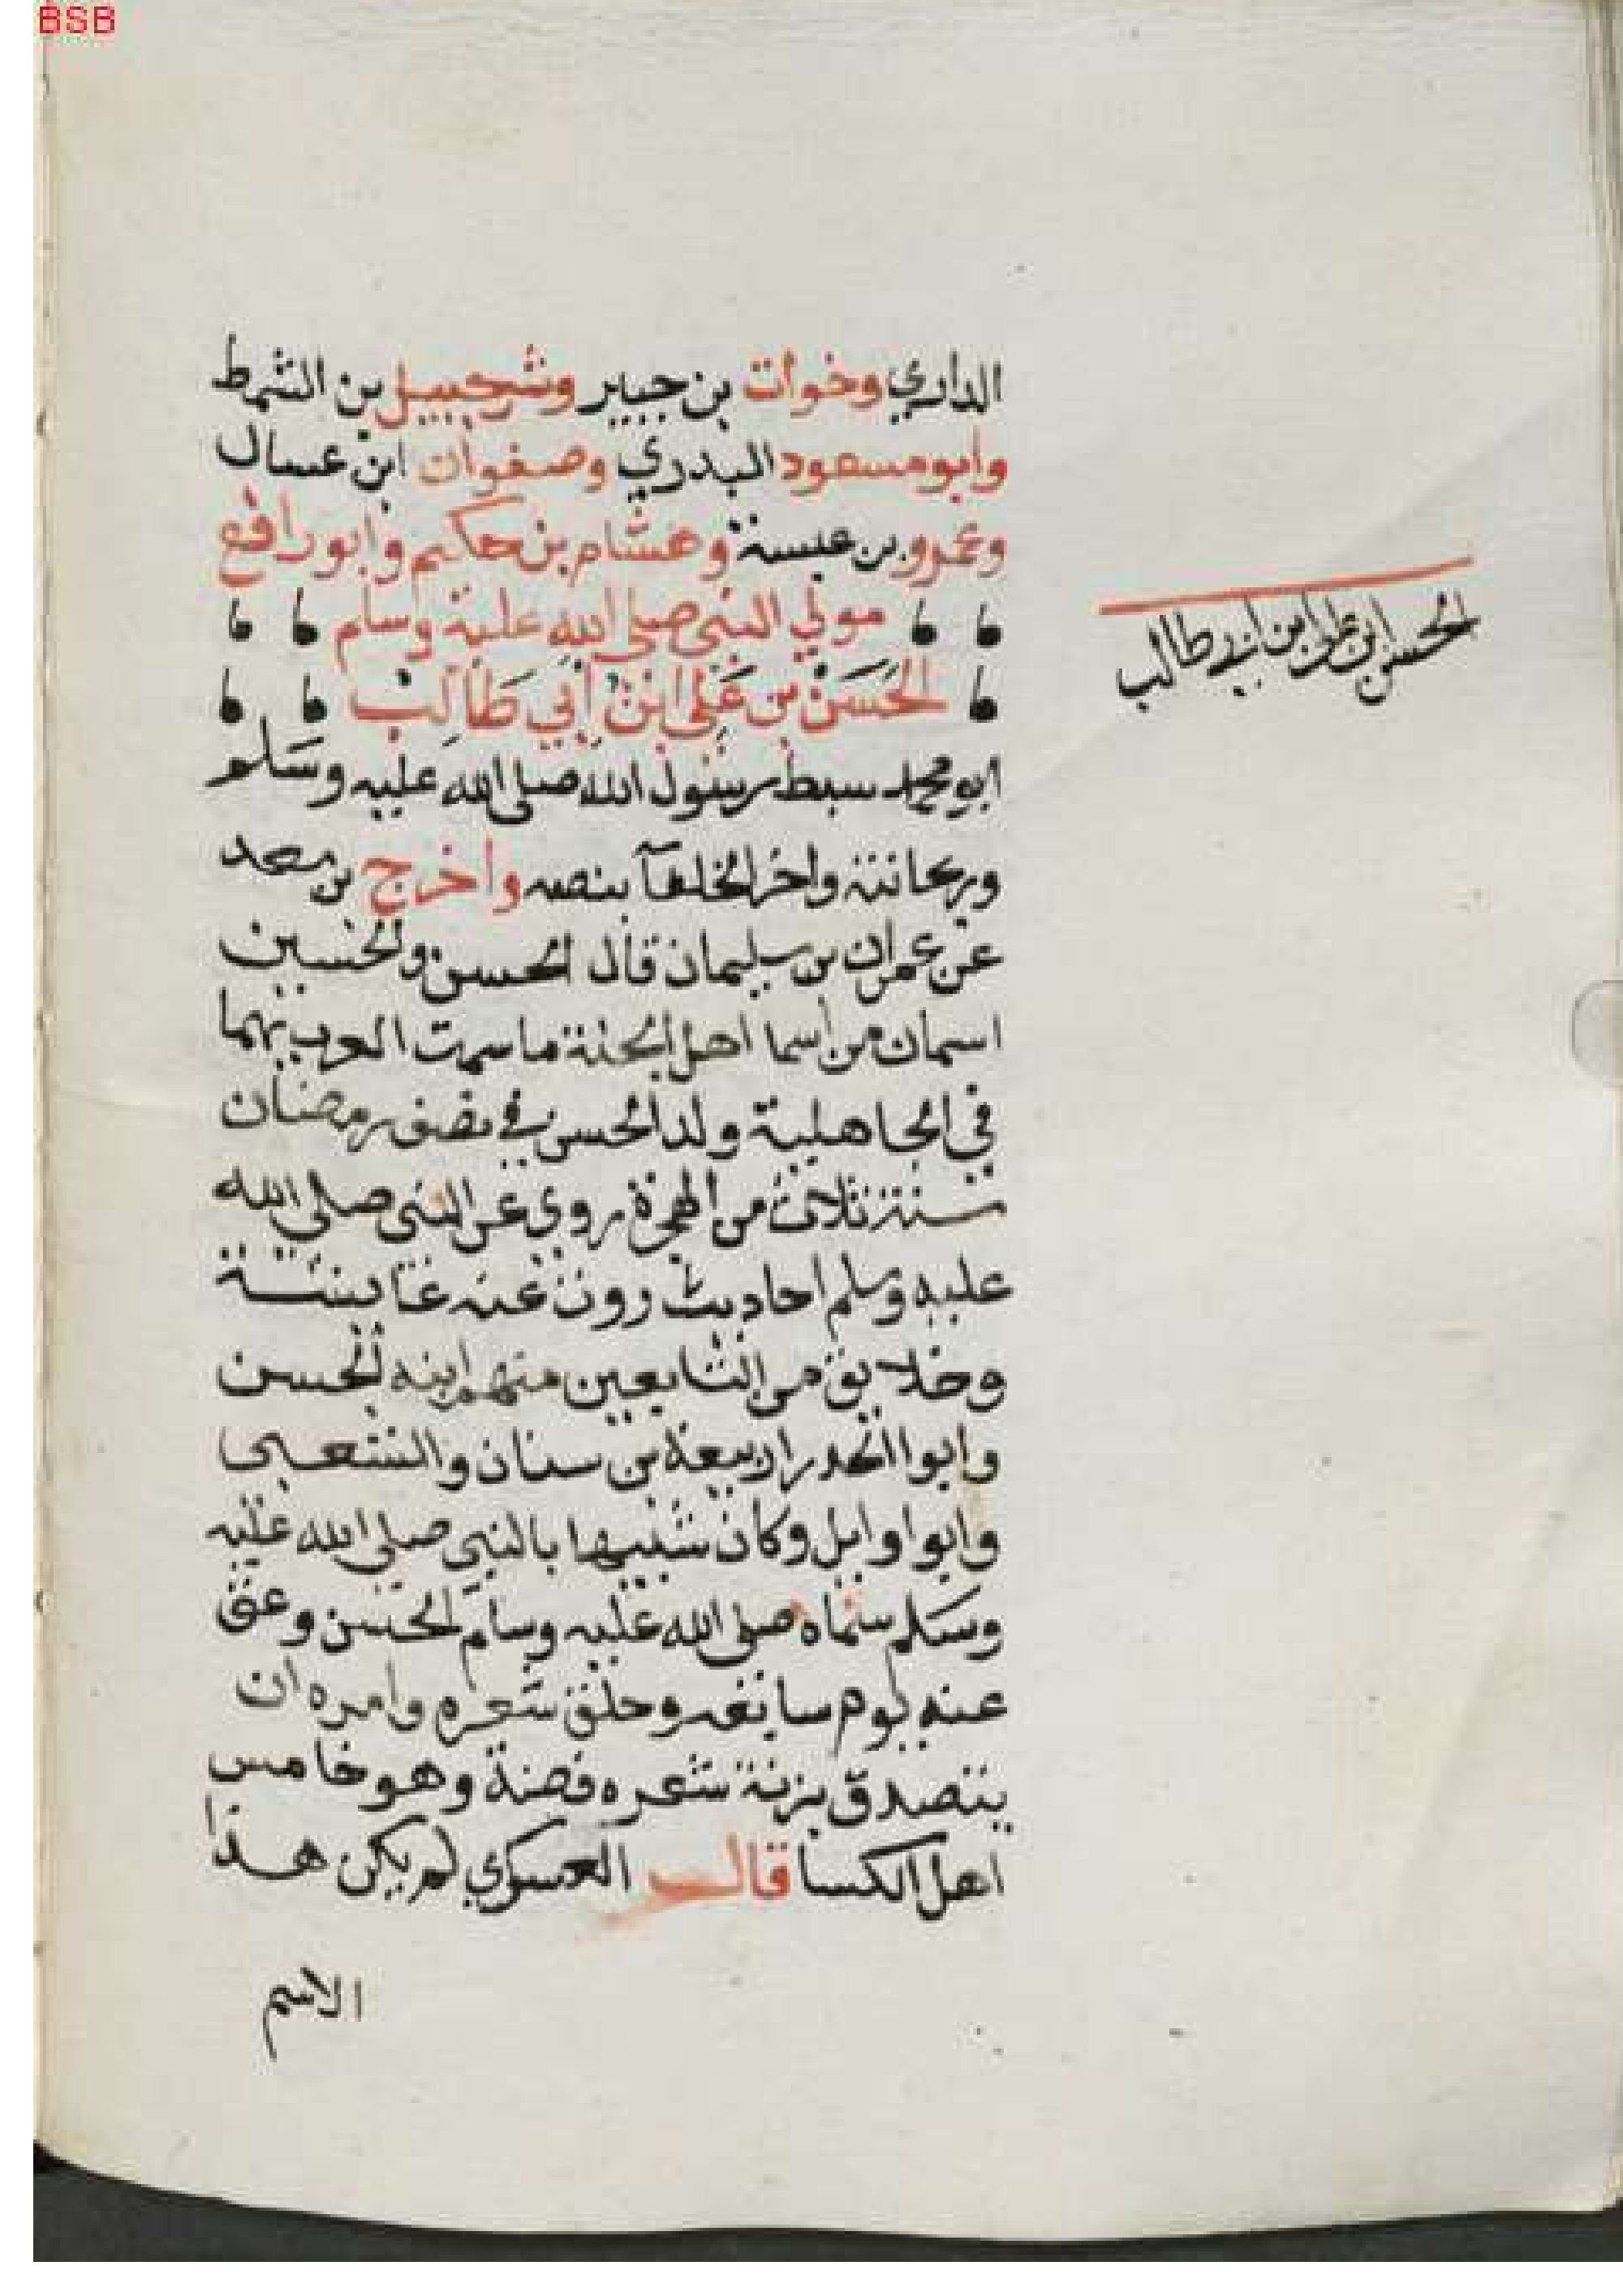 BSB
الداري وخوات بن جبير وشرحبيل بن الشمط
وابو مسعود البدري وصفوان ابن عسال
وعمرو بن عبسة وهشام بن حكيم وابو رافع
مولي النبي صلي الله علية وسلم
الحسن ابن علي ابن ابي طالب
الحَسَنْ بن عَلي ابن أبي طَالِب
ابو محمد سبط رسول الله صلي الله عليه وسَلم
وريحانته واخر الخلفآ بنصه واخرج بن سعد
عن عمران بن سليمان قال الحسن والحسين
اسمان من اسما اهل الجنة ما سمت العرب بهما
في الجاهلية ولد الحسن في نصف رمضان
سنة ثلاث من الهجرة روي عن النبي صلي الله
عليه وسلم احاديث روت عنه عايشة
وخلايق من التابعين منهم ابنه الحسن
وابوا الحورا ربيعة بن سنان والشعبي
وابوا وايل وكان شبيها بالنبي صلي الله عليه
وسَلم سماه صلي الله عليه وسلم الحسن وعق
عنه يوم سابعه وحلق شعره وامره ان
يتصدق بزنة شعره فضة وهو خامس
اهل الكسا قال العسكري لم يكن هذا
الاسم